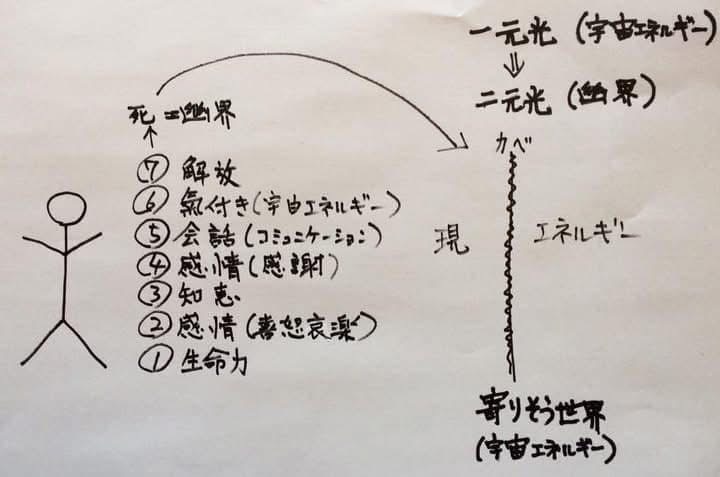 一元光 (宇宙エネルギー)
⇓
二元光 (幽界)
カベ
死=幽界
↑
⑦ 解放
⑥ 氣付き(宇宙エネルギー)
⑤ 会話 (コミュニケーション)
④ 感情 (感謝)
③ 知恵
② 感情 (喜怒哀楽)
① 生命力
現 エネルギー
寄りそう世界
(宇宙エネルギー)